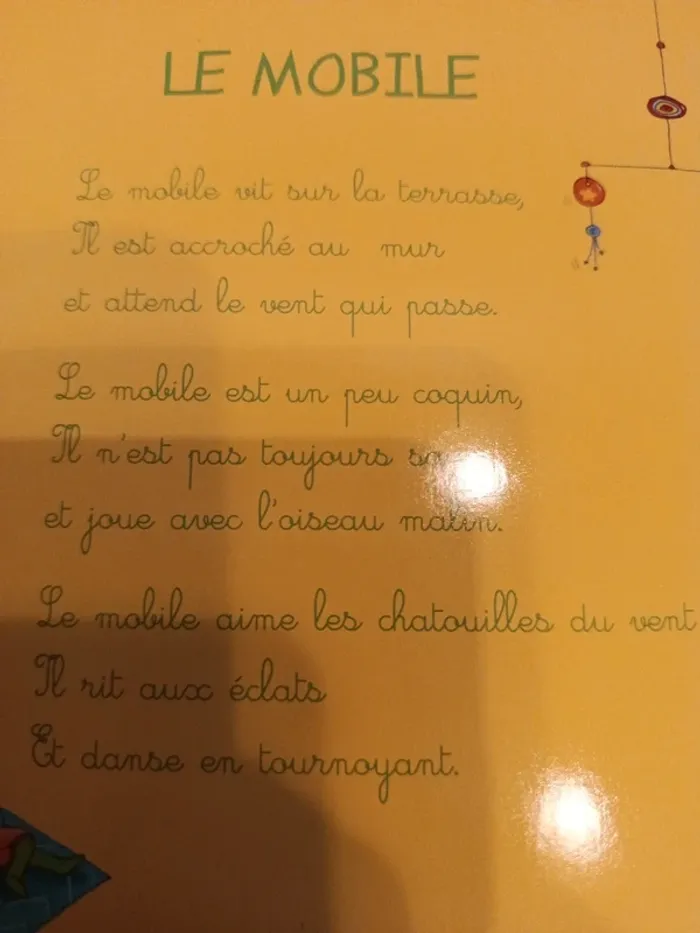 LE MOBILE
Le mobile vit sur la terrasse,
Il est accroché au mur
et attend le vent qui passe.
Le mobile est un peu coquin,
Il n'est pas toujours
et joue avec l'oiseau malin.
Le mobile aime les chatouilles du vent
Il rit aux éclats
Et danse en tournoyant.